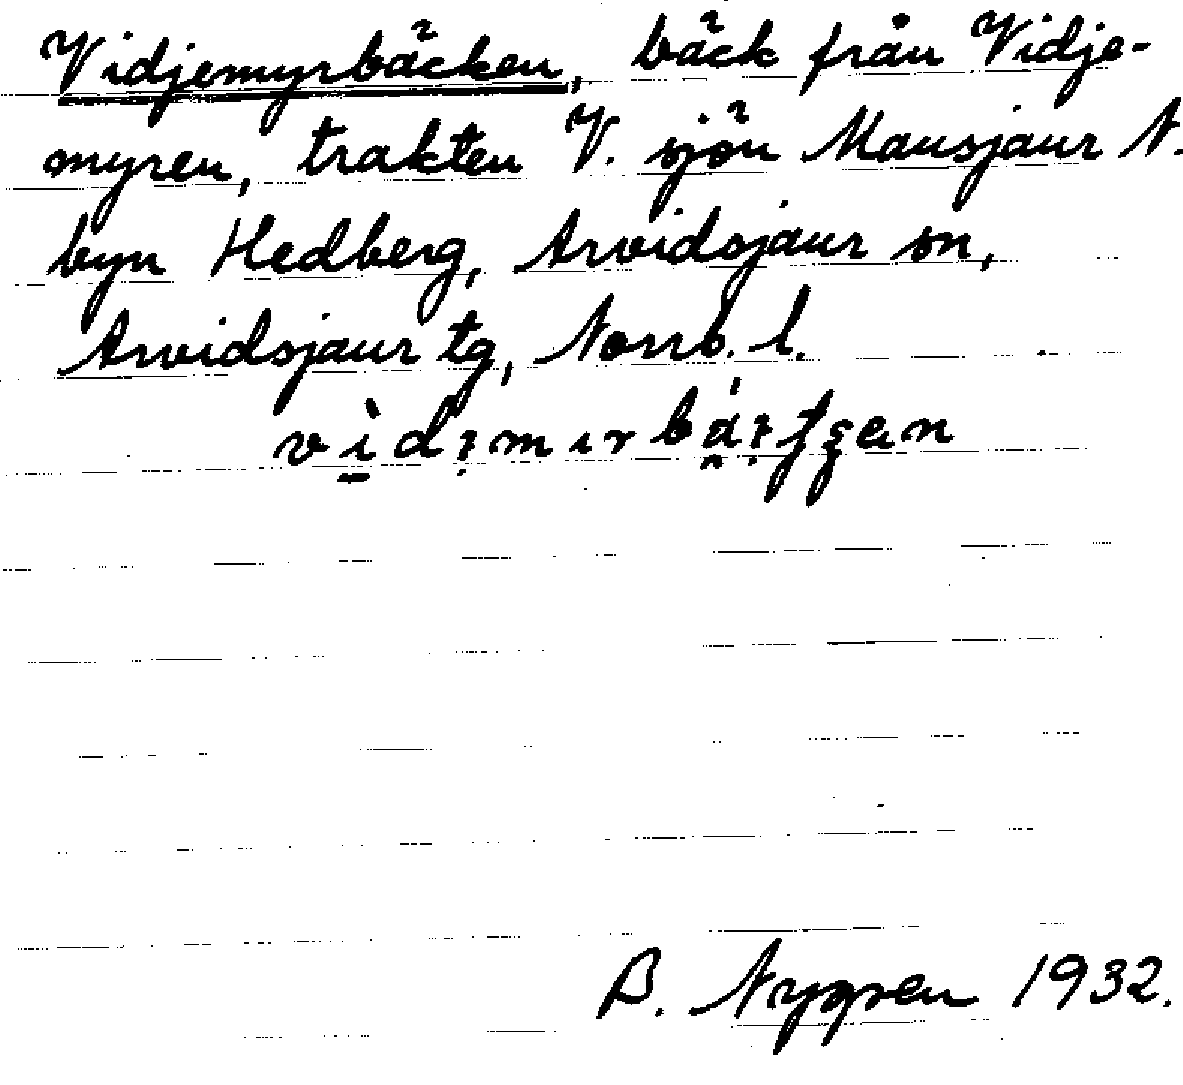 Vidjemyrbäcken, bäck från Vidje-
myren, trakten V. sjön Mausjaur N.
byn Hedberg, Arvidsjaur sn,
Arvidsjaur tg, Norrb. l.
B. Nygren 1932.